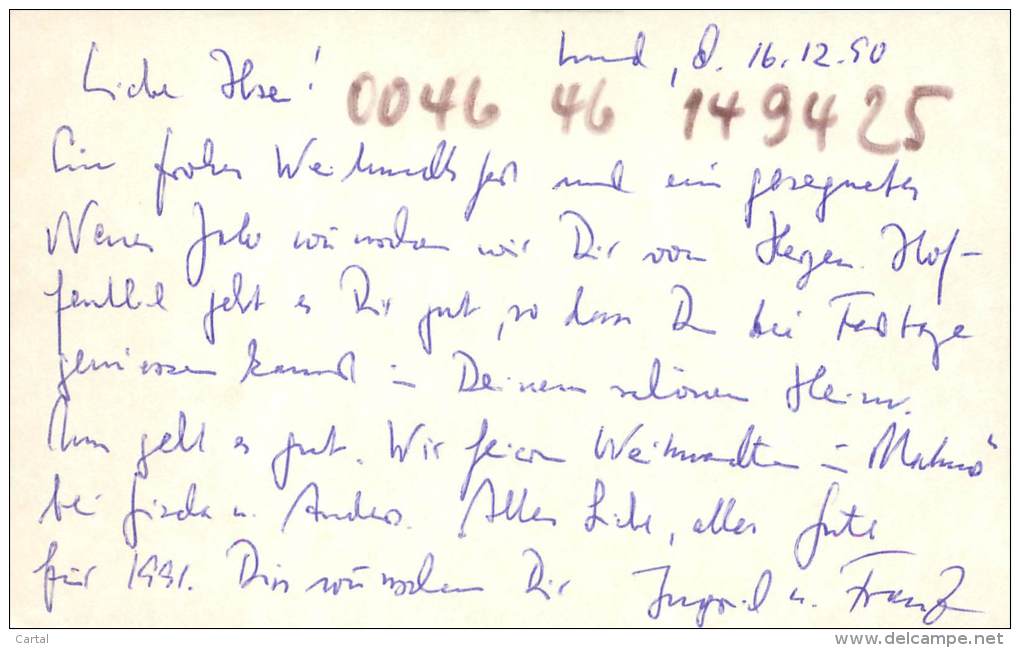 Lund, d. 16.12.90
Liebe Ilse!
0046 46 149425
Ein frohes Weihnachtsfest und ein gesegnetes
Neues Jahr wünschen wir Dir von Herzen. Hof-
fentlich geht es Dir gut, so dass Du die Festtage
geniessen kannst in Deinem schönen Heim.
Uns geht es gut. Wir feiern Weihnachten in Malmö
bei Gisela u. Anders. Alles Liebe, alles Gute
für 1991. Dies wünschen Dir Ingrid u. Franz
Cartal
www.delcampe.net